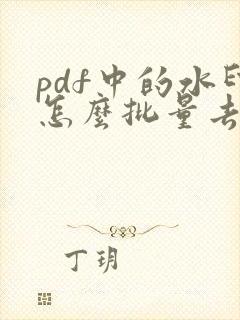 pdf中的水印
怎麼批量去
丁玥